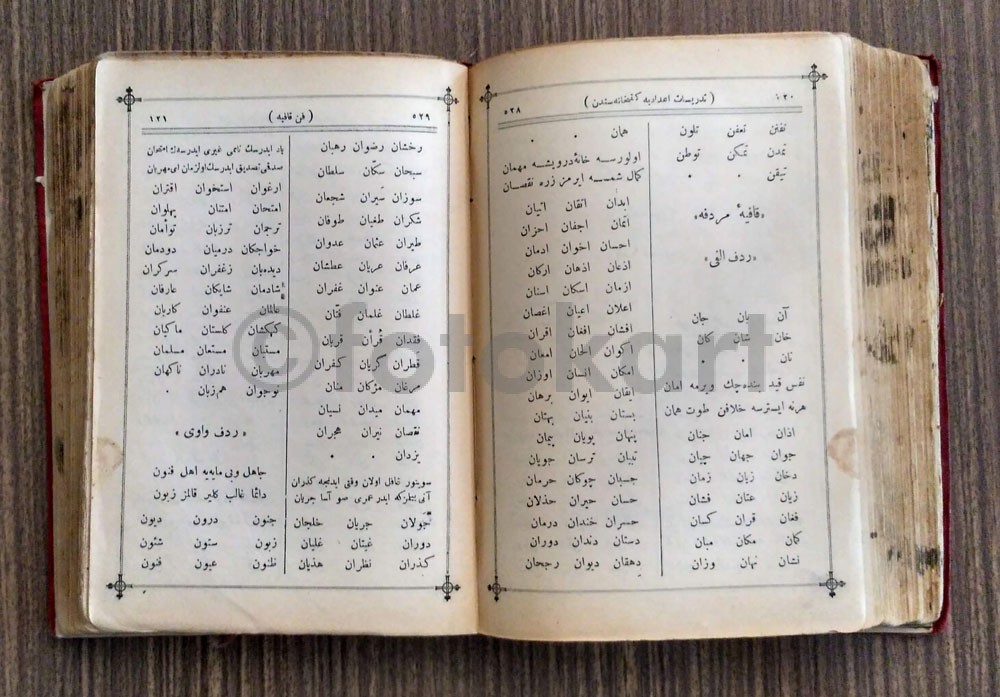 ١٢٠ ( تدريسات اعداديه كتبخانه سندن ) ٥٢٨
تفنن تعفن تلون
تمدن تمكن توطن
تيقن
«قافيهٔ مردفه»
«ردف الفى»
آن بان جان
خان شان كان
نان
نفس قيد بنده‌جك ويرمه امان
هرنه ايسترسه خلافن طوت همان
اذان امان جنان
جوان جهان چپان
دخان زبان زمان
زيان عنان فشان
فغان قران كسان
كان مكان ميان
نشان نهان وزان
همان
اولورسه خانهٔ درويشه مهمان
كمال شمسه ايرمز زره نقصان
ابدان اتقان اتيان
اثمان اجفان احزان
احسان اخوان ادمان
اذعان اذهان اركان
ازمان اسكان اسنان
اعلان اعيان اغصان
افشان افغان اقران
اكوان الحان امعان
امكان انسان اوزان
ايقان ايوان برهان
بستان بنيان بهتان
پنهان پويان پيمان
تبيان ترسان جويان
جسبان چوكان حرمان
حسان حيران حذلان
حسران خندان درمان
دستان دندان دوران
دهقان ديوان رجحان
٥٢٩ ( فن قافيه ) ١٢١
رخشان رضوان رهبان
سبحان سكّان سلطان
سوزان سَيران شجعان
شكران طغيان طوفان
طيران عثمان عدوان
عرفان عريان عطشان
عمان عنوان غفران
غلطان غلمان فتان
فقدان قرآن قربان
قطران كريان كفران
مرغان مژكان منان
مهمان ميدان نسيان
نقصان نيران هجران
يزدان
سوينور غافل اولان وقتى ايدنجه كذران
آنى بيلمزكه ايدر عمرى صو آسا جريان
جَوَلان جريان خلجان
دوران غثيان غليان
كذران نظران هذيان
ياد ايدرسك نامى غيرى ايدرسه‌ك امتحان
صدقى تصديق ايدرسك اولزمان اى مهربان
ارغوان استخوان اقتران
امتحان امتنان پهلوان
ترجمان ترزبان توأمان
خواجكان درميان دودمان
ديده‌بان زعفران سركران
شادمان شايكان عارفان
عالمان عنفوان كاربان
كهكشان كلستان ماكيان
مستبان مستعان مسلمان
مهربان نادران ناكهان
نوجوان هم‌زبان
«ردف واوى»
جاهل وبى مايه‌يه اهل فنون
دائما غالب كلير قالمز زبون
جنون درون ديون
زبون ستون شئون
ظنون عيون فنون
© fotokart